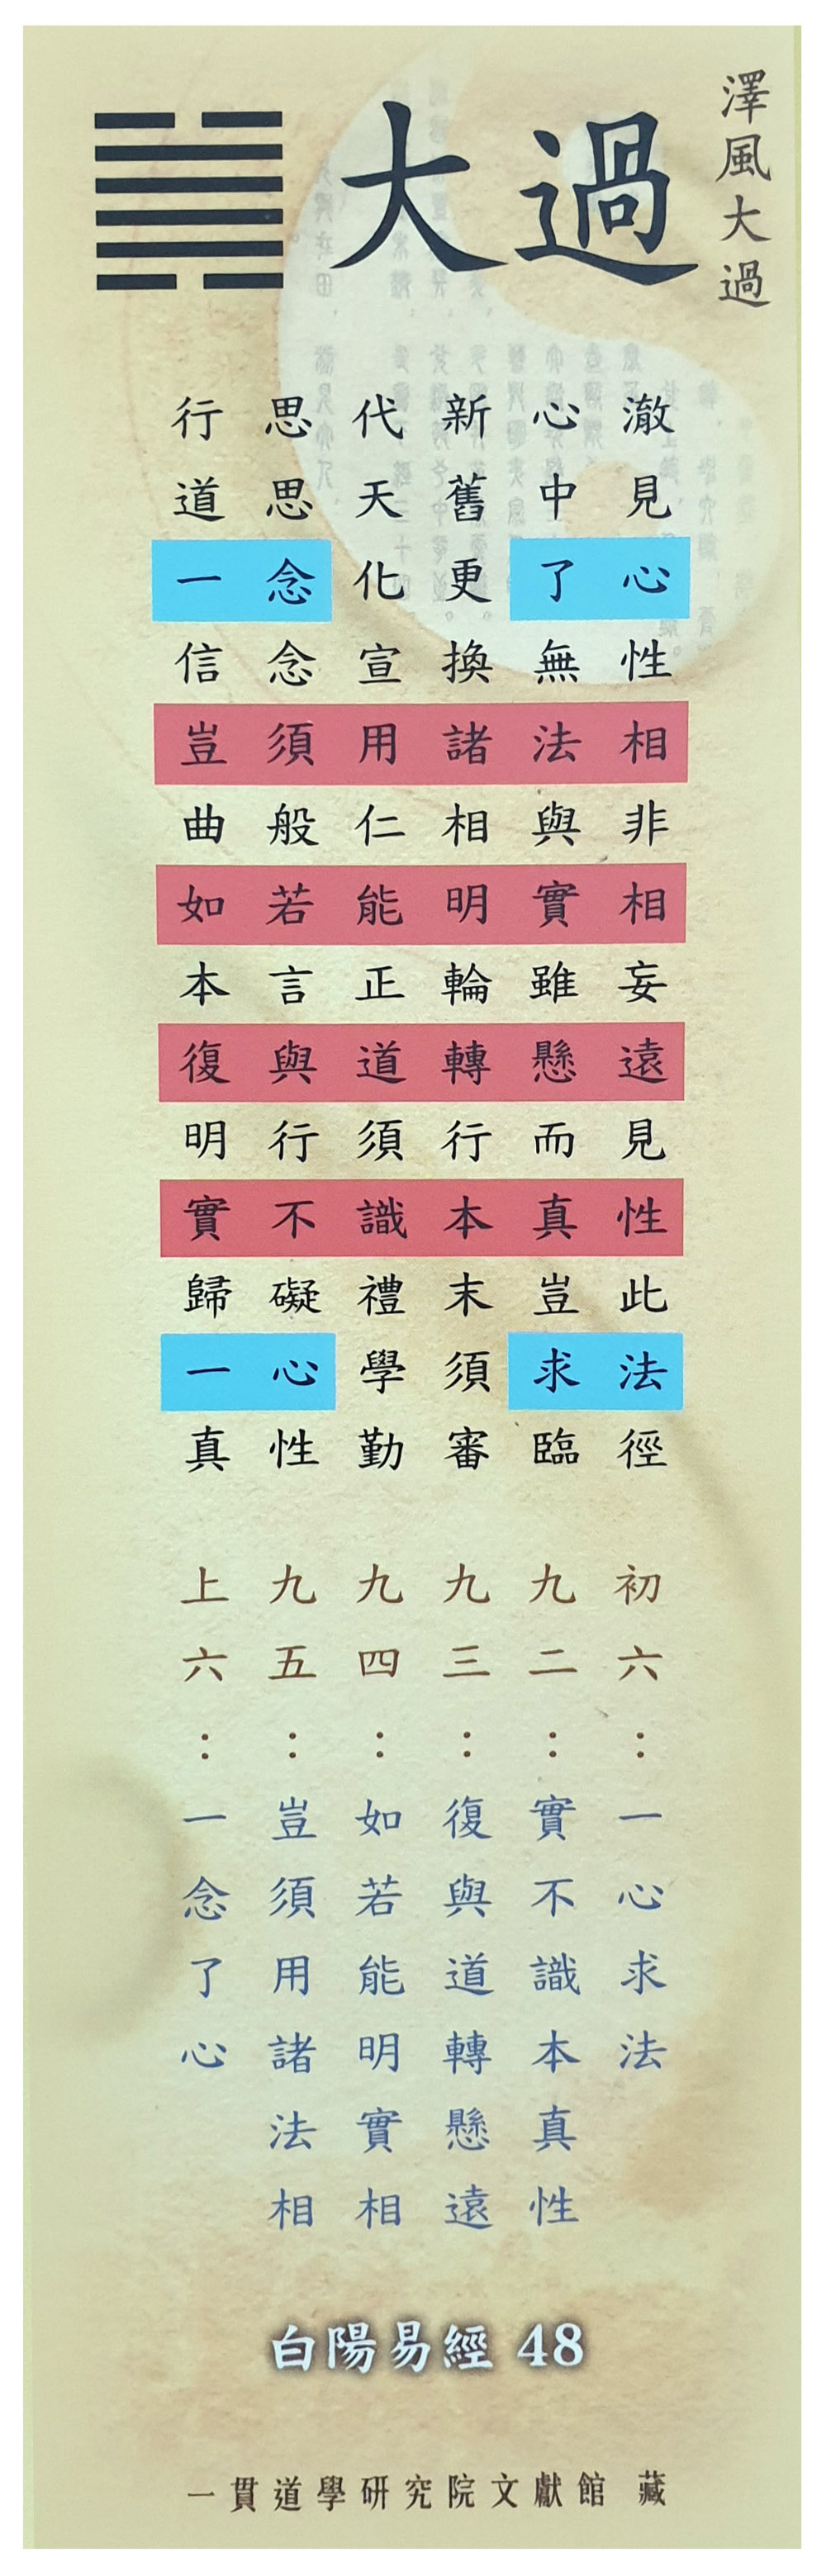 澤風大過
大過
澈見心性相非相妄遠見性此法徑
心中了無法與實雖懸而真豈求臨
新舊更換諸相明輪轉行本末須審
代天化宣用仁能正道須識禮學勤
思思念念須般若言與行不礙心性
行道一信豈曲如本復明實歸一真
初六：一心求法
九二：實不識本真性
九三：復與道轉懸遠
九四：如若能明實相
九五：豈須用諸法相
上六：一念了心
白陽易經 48
一貫道學研究院文獻館 藏